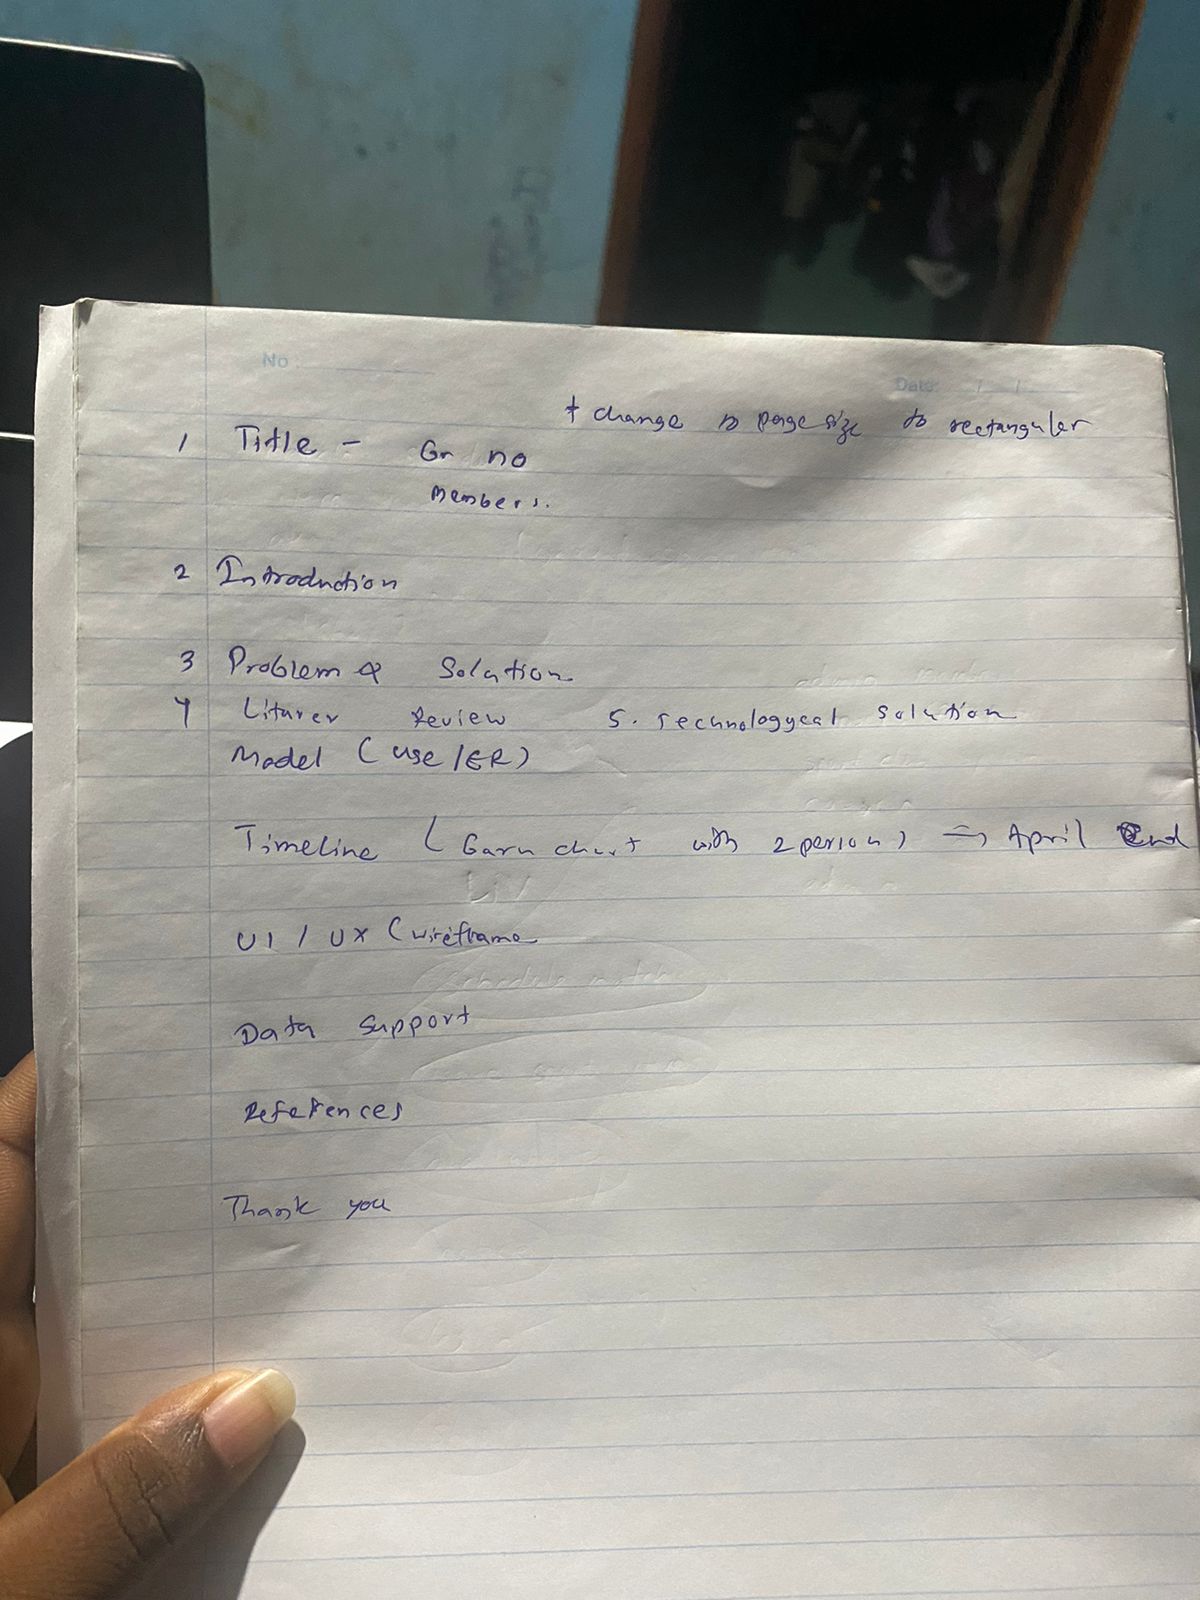 No
Date: / /
+ change page size to rectanguler
1 Title - Gr no
members.
2 Introduction
3 Problem & Solution
4 Literer Review 5. Technologycal solution
Model (use/ER)
Timeline ( chart with 2 person) => April end
UI / UX (wireframe
Data Support
References
Thank you